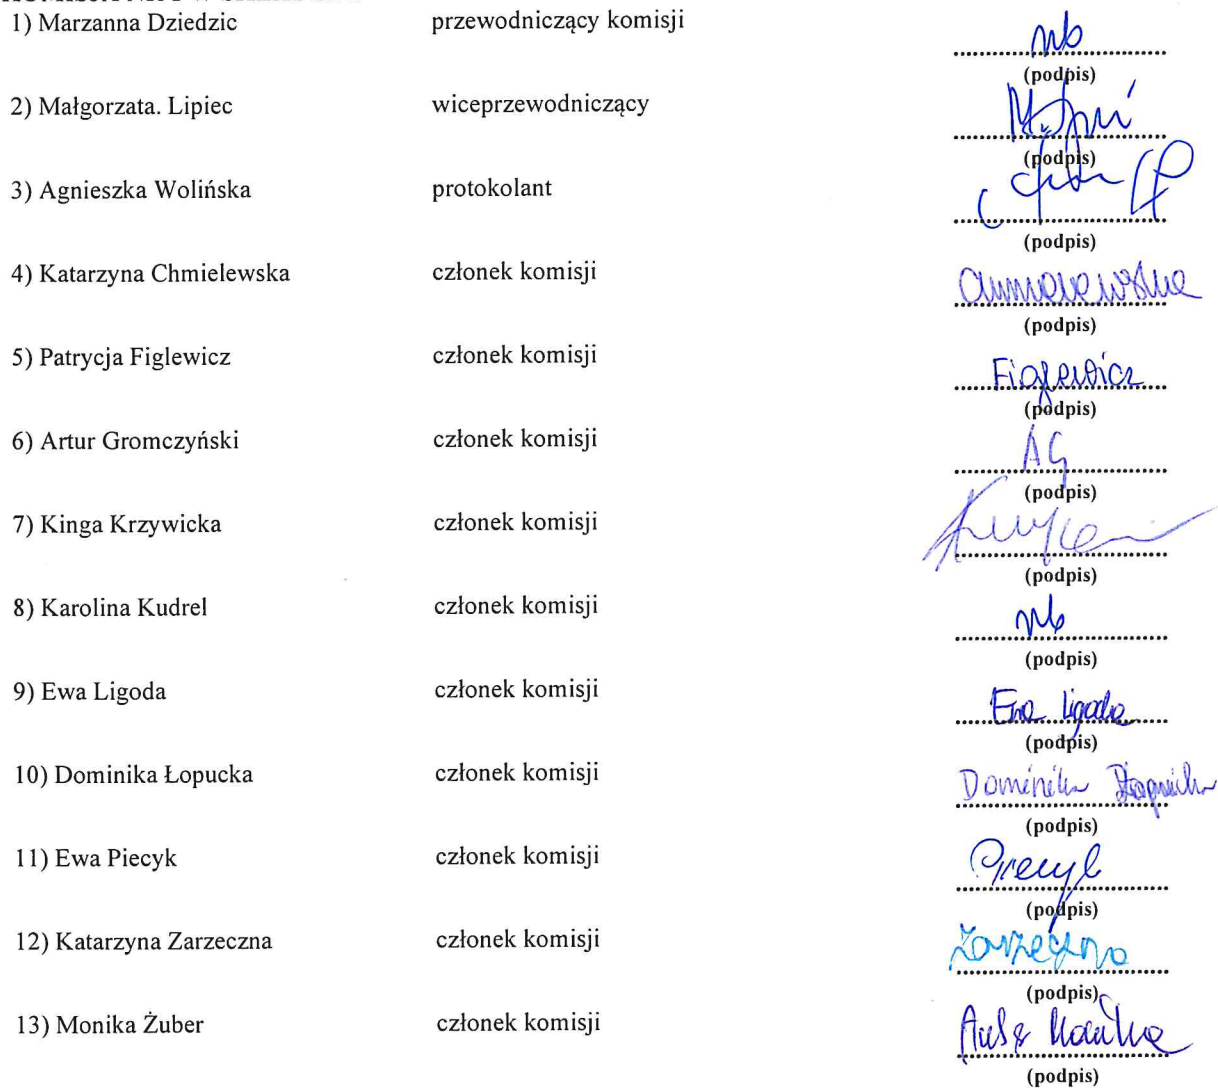 1) Marzanna Dziedzic przewodniczący komisji nb
(podpis)
2) Małgorzata. Lipiec wiceprzewodniczący
(podpis)
3) Agnieszka Wolińska protokolant
(podpis)
4) Katarzyna Chmielewska członek komisji Chmielewska
(podpis)
5) Patrycja Figlewicz członek komisji Figlewicz
(podpis)
6) Artur Gromczyński członek komisji AG
(podpis)
7) Kinga Krzywicka członek komisji
(podpis)
8) Karolina Kudrel członek komisji nb
(podpis)
9) Ewa Ligoda członek komisji Ewa Ligoda
(podpis)
10) Dominika Łopucka członek komisji Dominika
(podpis)
11) Ewa Piecyk członek komisji Piecyk
(podpis)
12) Katarzyna Zarzeczna członek komisji Zarzeczna
(podpis)
13) Monika Żuber członek komisji Monika
(podpis)